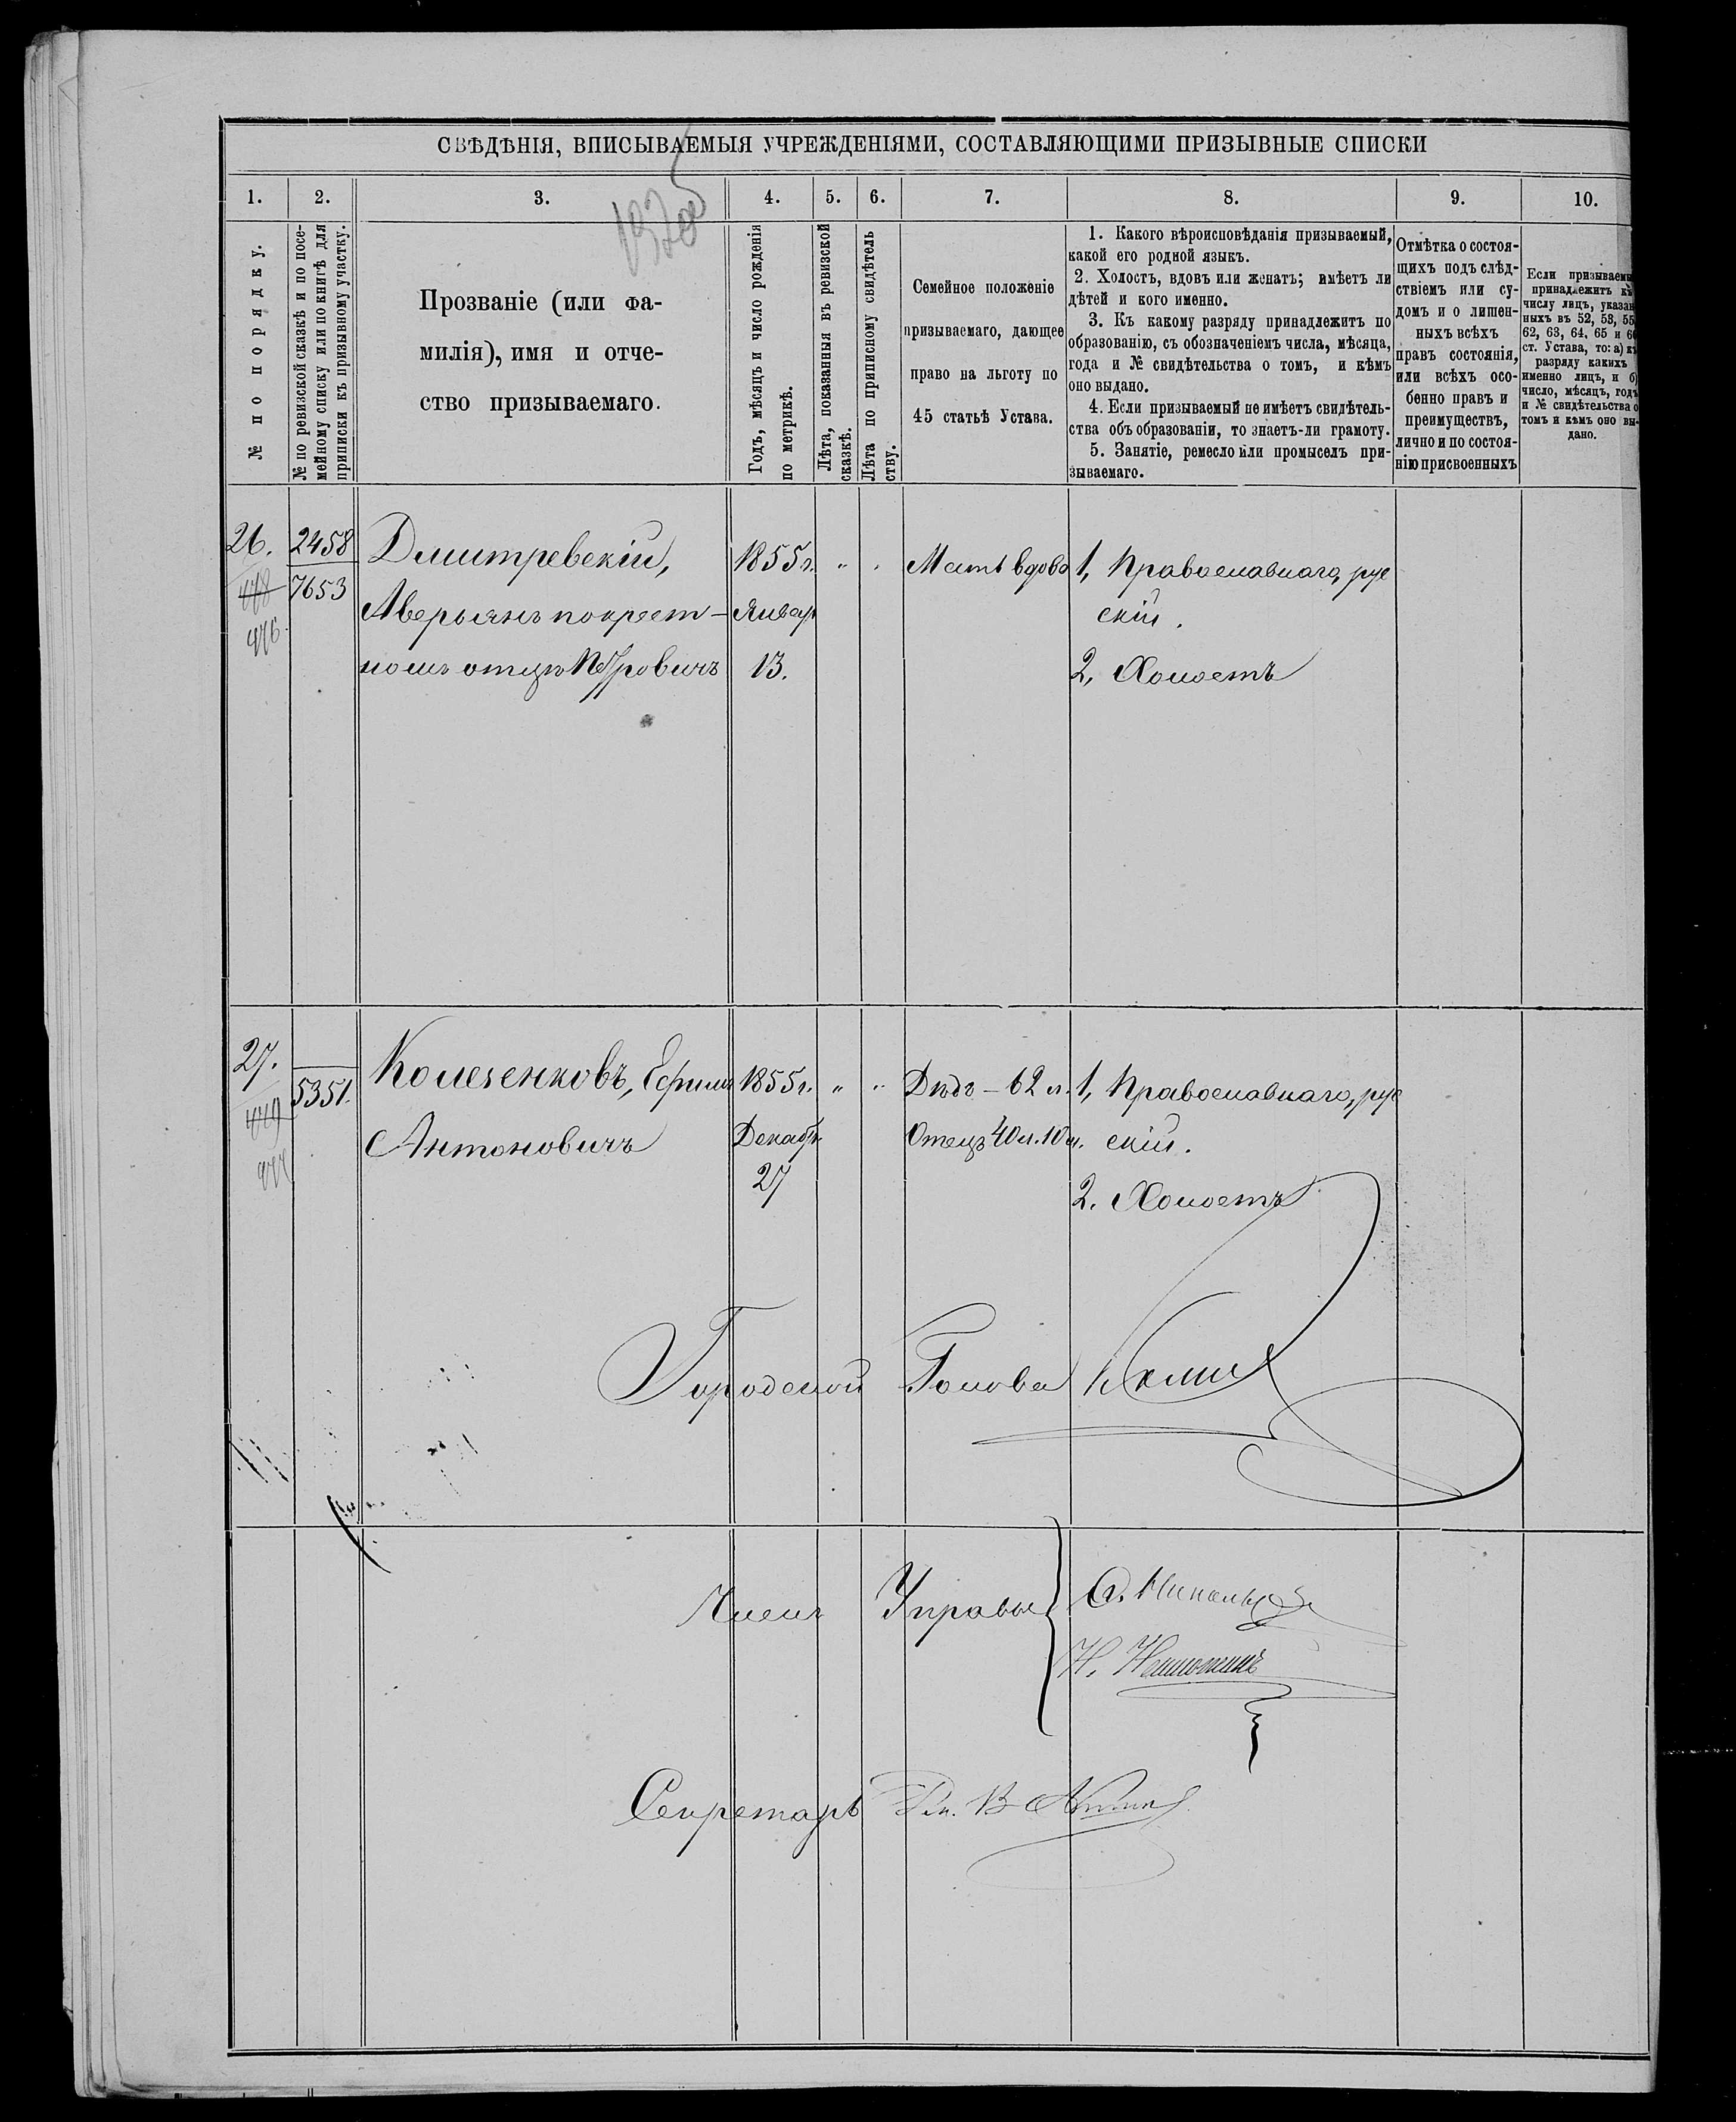 СВѢДѢНІЯ, ВПИСЫВАЕМЫЯ УЧРЕЖДЕНІЯМИ, СОСТАВЛЯЮЩИМИ ПРИЗЫВНЫЕ СПИСКИ
1. 2. 3. 4. 5. 6. 7. 8. 9. 10.
№ по порядку.
№ по ревизской сказкѣ и по посе-
мейному списку или по книгѣ для
приписки къ призывному участку.
Прозваніе (или фа-
милія), имя и отче-
ство призываемаго.
Годъ, мѣсяцъ и число рожденія
по метрикѣ.
Лѣта, показанныя въ ревизской
сказкѣ.
Лѣта по приписному свидѣтель
ству.
Семейное положеніе
призываемаго, дающее
право на льготу по
45 статьѣ Устава.
1. Какого вѣроисповѣданія призываемый,
какой его родной языкъ.
2. Холостъ, вдовъ или женатъ; имѣетъ ли
дѣтей и кого именно.
3. Къ какому разряду принадлежитъ по
образованію, съ обозначеніемъ числа, мѣсяца,
года и № свидѣтельства о томъ, и кѣмъ
оно выдано.
4. Если призываемый не имѣетъ свидѣтель-
ства объ образованіи, то знаетъ-ли грамоту.
5. Занятіе, ремесло или промыселъ при-
зываемаго.
Отмѣтка о состоя-
щихъ подъ слѣд-
ствіемъ или су-
домъ и о лишен-
ныхъ всѣхъ
правъ состоянія,
или всѣхъ осо-
бенно правъ и
преимуществъ,
лично и по состоя-
нію присвоенныхъ
Если призываемы
принадлежитъ къ
числу лицъ, указан
ныхъ въ 52, 53, 55,
62, 63, 64, 65 и 6
ст. Устава, то: а) къ
разряду какихъ
именно лицъ, и б)
число, мѣсяцъ, годъ
и № свидѣтельства о
томъ и кѣмъ оно вы-
дано.
26.
478
476.
2458
7653
Дмитревскій,
Аверьянъ по крест-
номъ отцѣ Петровичъ
1855 г.
Январ
13.
" "
Мать вдова
1, Православнаго, рус
скій.
2, Холостъ
27.
479
477
5351.
Колезенковъ, Ефимъ
Антоновичъ
1855 г.
Декабр.
27
" "
Дѣдъ – 62 л.
Отецъ 40 л. 10 м.
1, Православнаго, рус
скій.
2. Холостъ
Городской Голова
Члены Управы
Секретарь